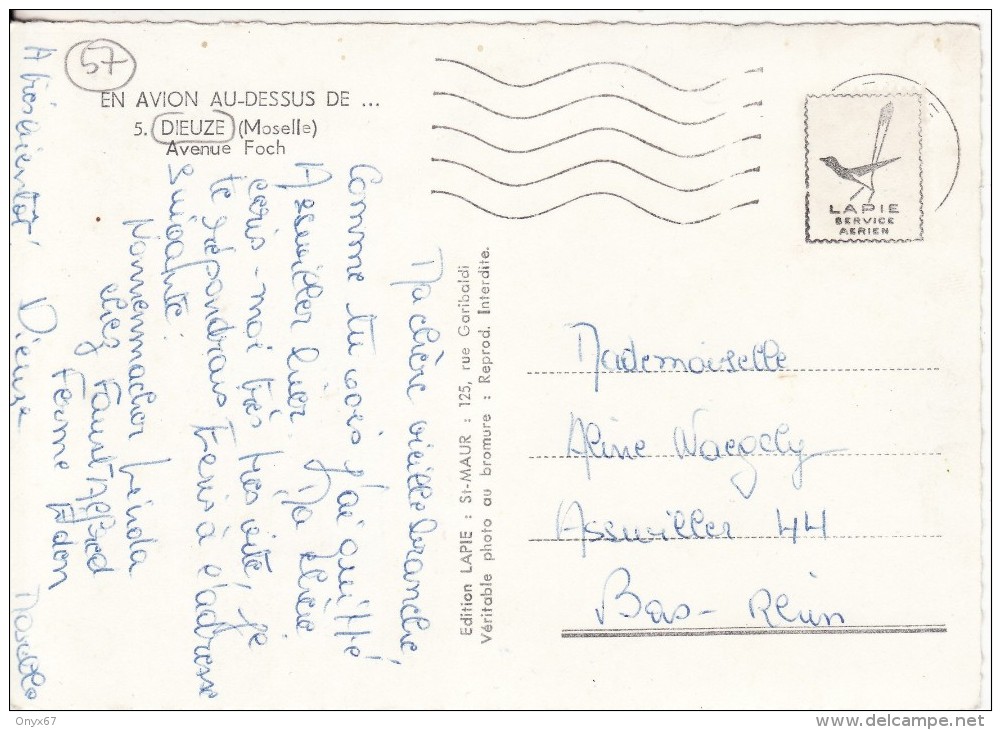 57
EN AVION AU-DESSUS DE ...
5. DIEUZE (Moselle)
Avenue Foch
Ma chère vieille branche,
Comme tu vois j'ai quitté
Asswiller hier Ma chérie
écris-moi très très vite, je
te répondrais tiens à l'adresse
suivante:
Nonnenmacher Linda
chez Faust Alfred
Ferme
Dieuze Moselle
A très bientôt
Edition LAPIE : St-MAUR : 125, rue Garibaldi
Véritable photo au bromure : Reprod. Interdite.
LAPIE
SERVICE
AERIEN
Mademoiselle
Aline Waegely
Asswiller 44
Bas-Rhin
Onyx67
www.delcampe.net